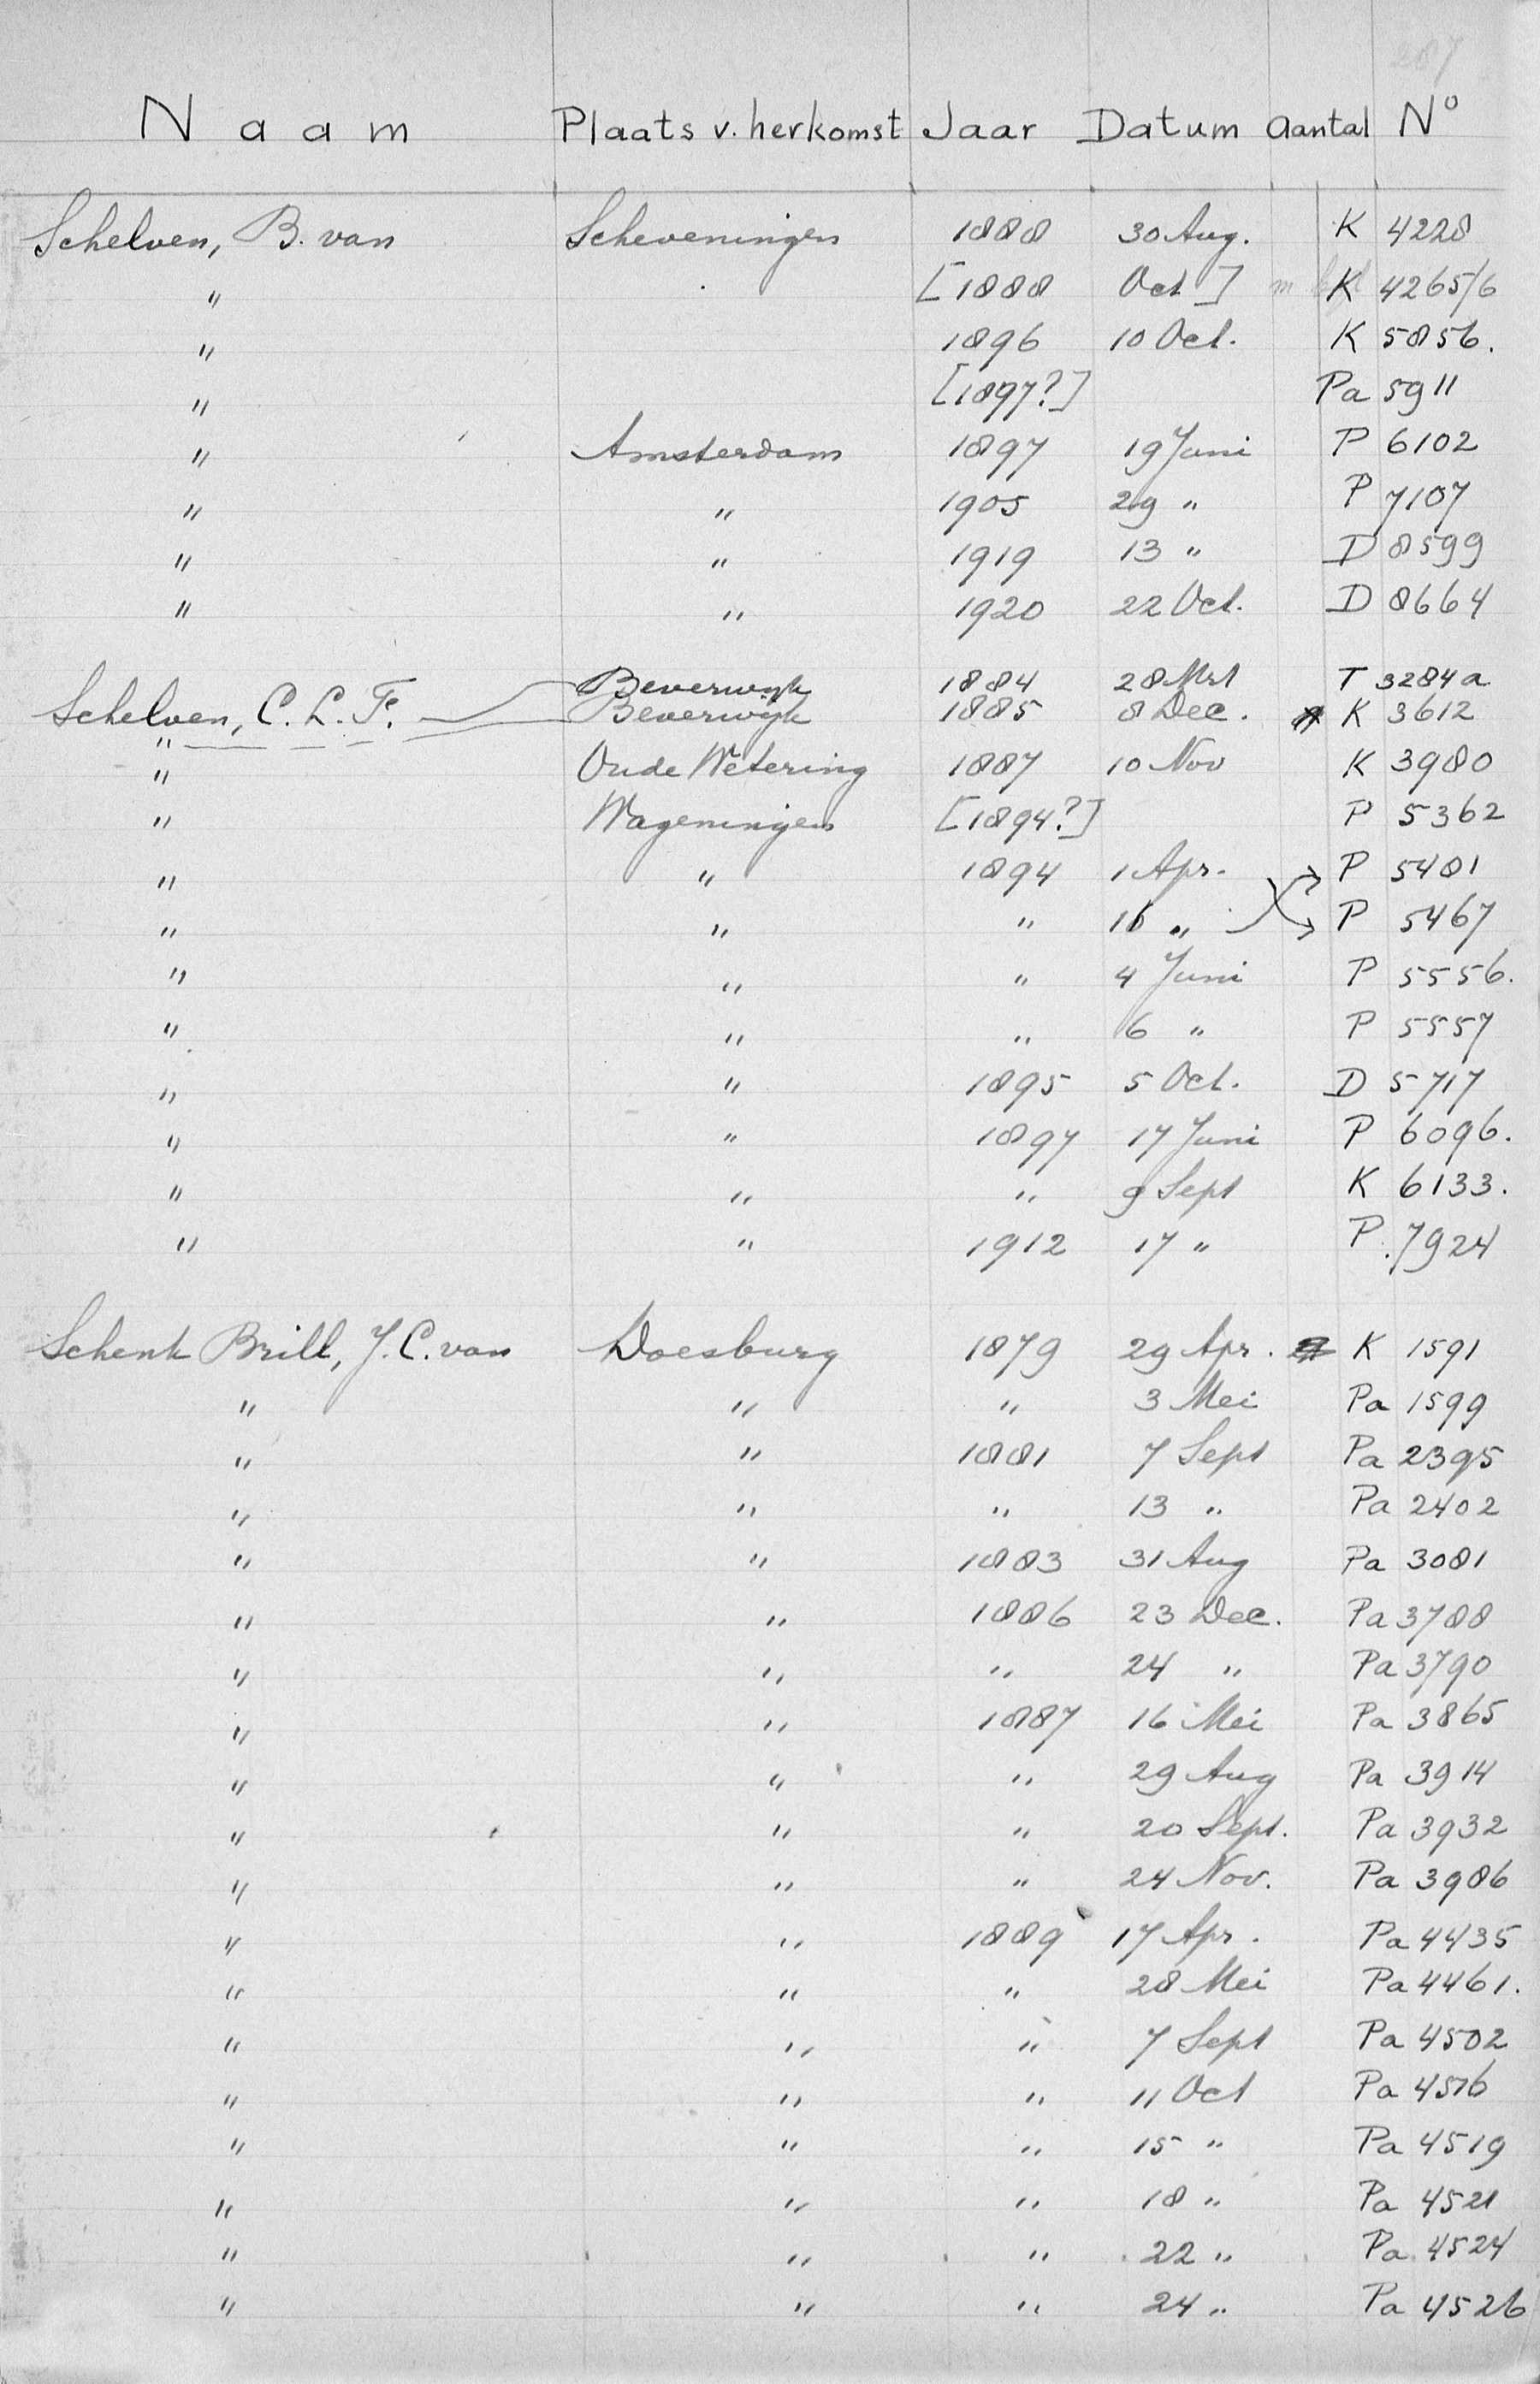 287
Naam Plaats v. herkomst Jaar Datum Aantal No
Schelven, B. van Scheveningen 1888 30 Aug. K 4228
" [1888 Oct] K 4265/6
" 1896 10 Oct. K 5856.
" [1897?] Pa 5911
" Amsterdam 1897 19 Juni P 6102
" " 1905 29 " P 7107
" " 1919 13 " D 8599
" " 1920 22 Oct. D 8664
Beverwijk 1884 28 Mrt T 3284a
Schelven, C. L. F. Beverwijk 1885 8 Dec. K 3612
"
" Oude Wetering 1887 10 Nov K 3980
" Wageningen [1894?] P 5362
" " 1894 1 Apr. P 5481
" " " 16 " P 5467
" " " 4 Juni P 5556.
" " " 6 " P 5557
" " 1895 5 Oct. D 5717
" " 1897 17 Juni P 6096.
" " " 9 Sept K 6133.
" " 1912 17 " P. 7924
Schenk Brill, J. C. van Doesburg 1879 29 Apr. K 1591
" " " 3 Mei Pa 1599
" " 1881 7 Sept Pa 2395
" " " 13 " Pa 2402
" " 1883 31 Aug Pa 3081
" " 1886 23 Dec. Pa 3788
" " " 24 " Pa 3790
" " 1887 16 Mei Pa 3865
" " " 29 Aug Pa 3914
" " " 20 Sept. Pa 3932
" " " 24 Nov. Pa 3986
" " 1889 17 Apr. Pa 4435
" " " 28 Mei Pa 4461.
" " " 7 Sept Pa 4502
" " " 11 Oct Pa 4516
" " " 15 " Pa 4519
" " " 18 " Pa 4521
" " " 22 " Pa 4524
" " " 24 " Pa 4526